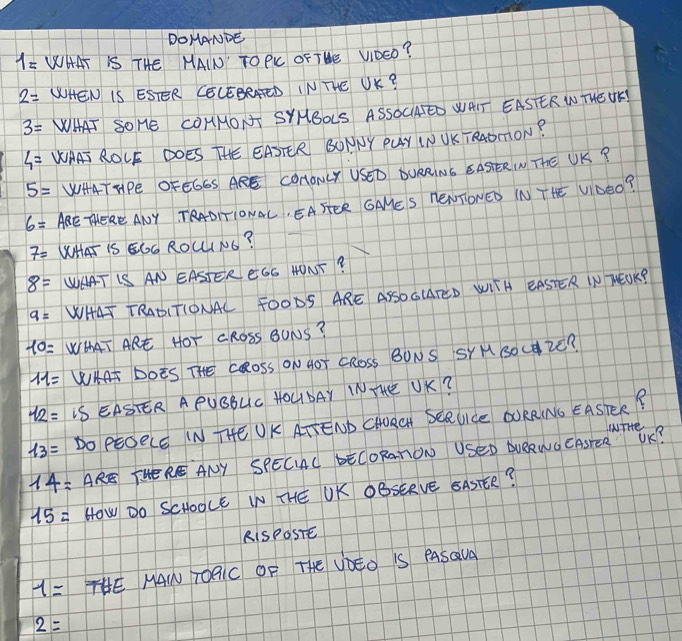 DOMANDE
1= WHAT IS THE MAIN TOPIC OF THE VIDEO?
2= WHEN IS ESTER CELEBRATED IN THE UK?
3= WHAT SOME COMMONT SYMBOLS ASSOCIATED WHIT EASTER IN THE UK?
4= WHAT ROLE DOES THE EASTER BUNNY PLAY IN UK TRADITION?
5= WHAT TIPE OF EGGS ARE COMONLY USED DURRING EASTER IN THE UK?
6= ARE THERE ANY TRADITIONAL EASTER GAMES MENTIONED IN THE VIDEO?
7= WHAT IS EGG ROLLING?
8= WHAT IS AN EASTER EGG HUNT?
9= WHAT TRADITIONAL FOODS ARE ASSOCIATED WITH EASTER IN THE UK?
10= WHAT ARE HOT CROSS BUNS?
11= WHAT DOES THE CROSS ON HOT CROSS BUNS SYMBOLIZE?
12= IS EASTER A PUBBLIC HOLIDAY IN THE UK?
13= DO PEOPLE IN THE UK ATTEND CHURCH SERVICE DURRING EASTER?
14= ARE THERE ANY SPECIAL DECORATION USED DURRING EASTER IN THE UK?
15= HOW DO SCHOOLE IN THE UK OBSERVE EASTER?
RISPOSTE
1= THE MAIN TOPIC OF THE VIDEO IS PASQUA
2=